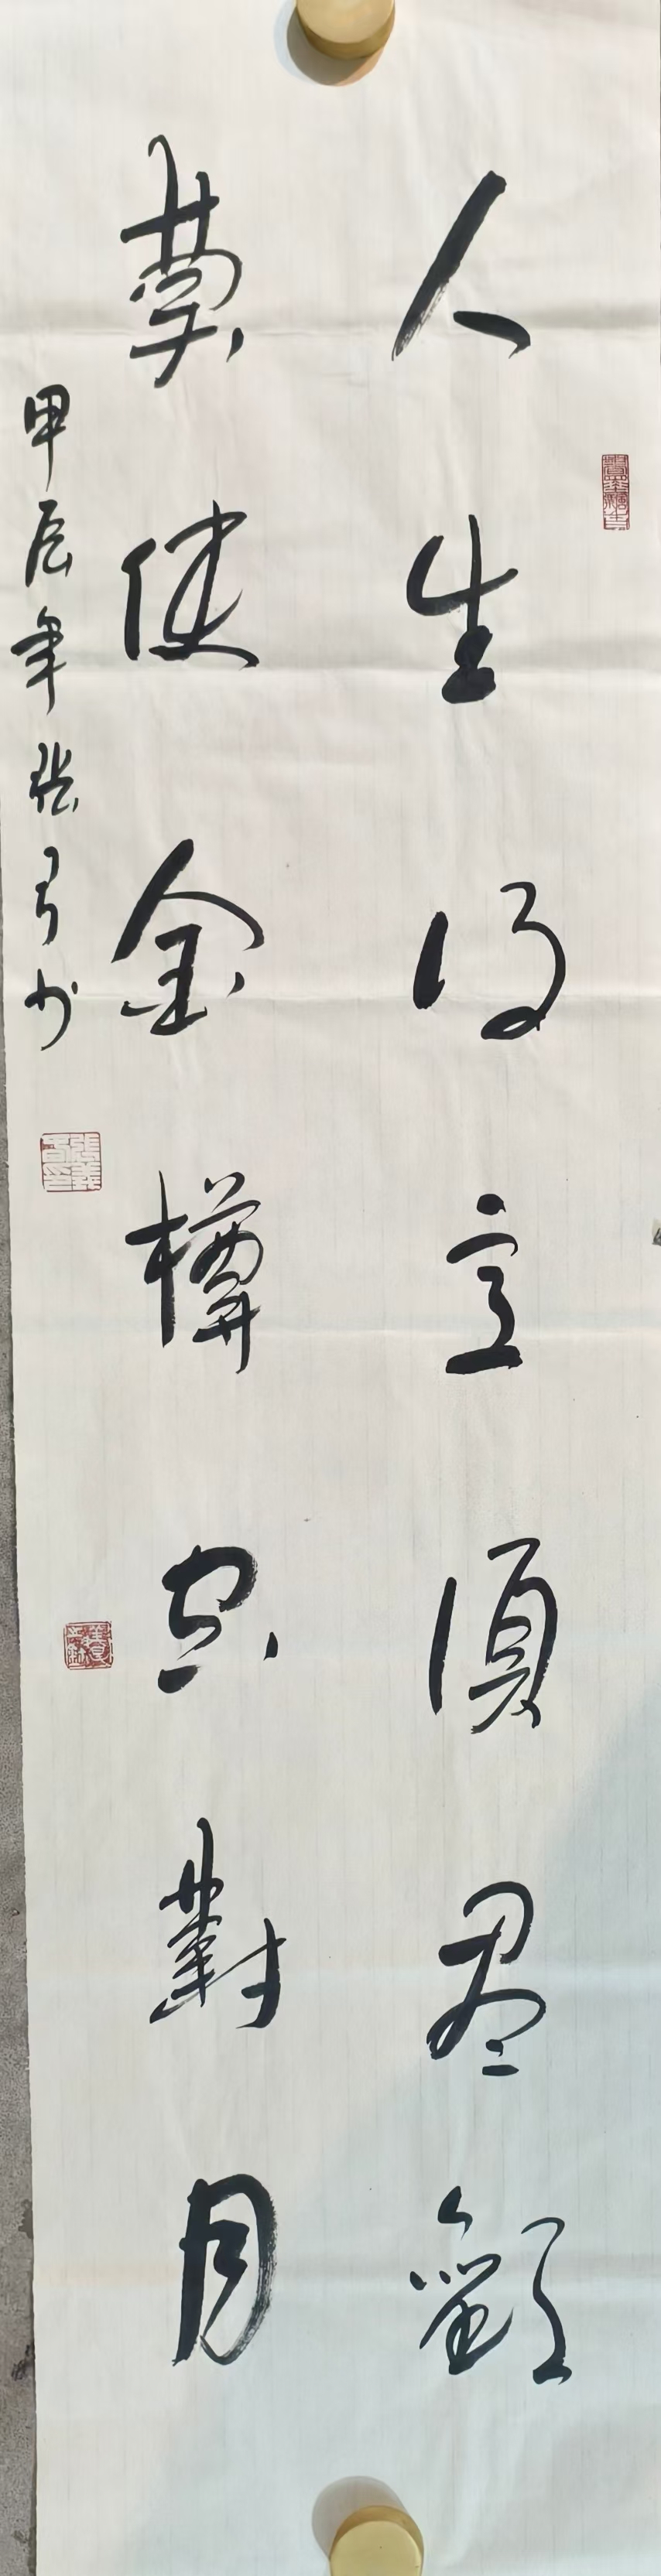 人生得意須盡歡
莫使金樽空對月
甲辰年張弓书